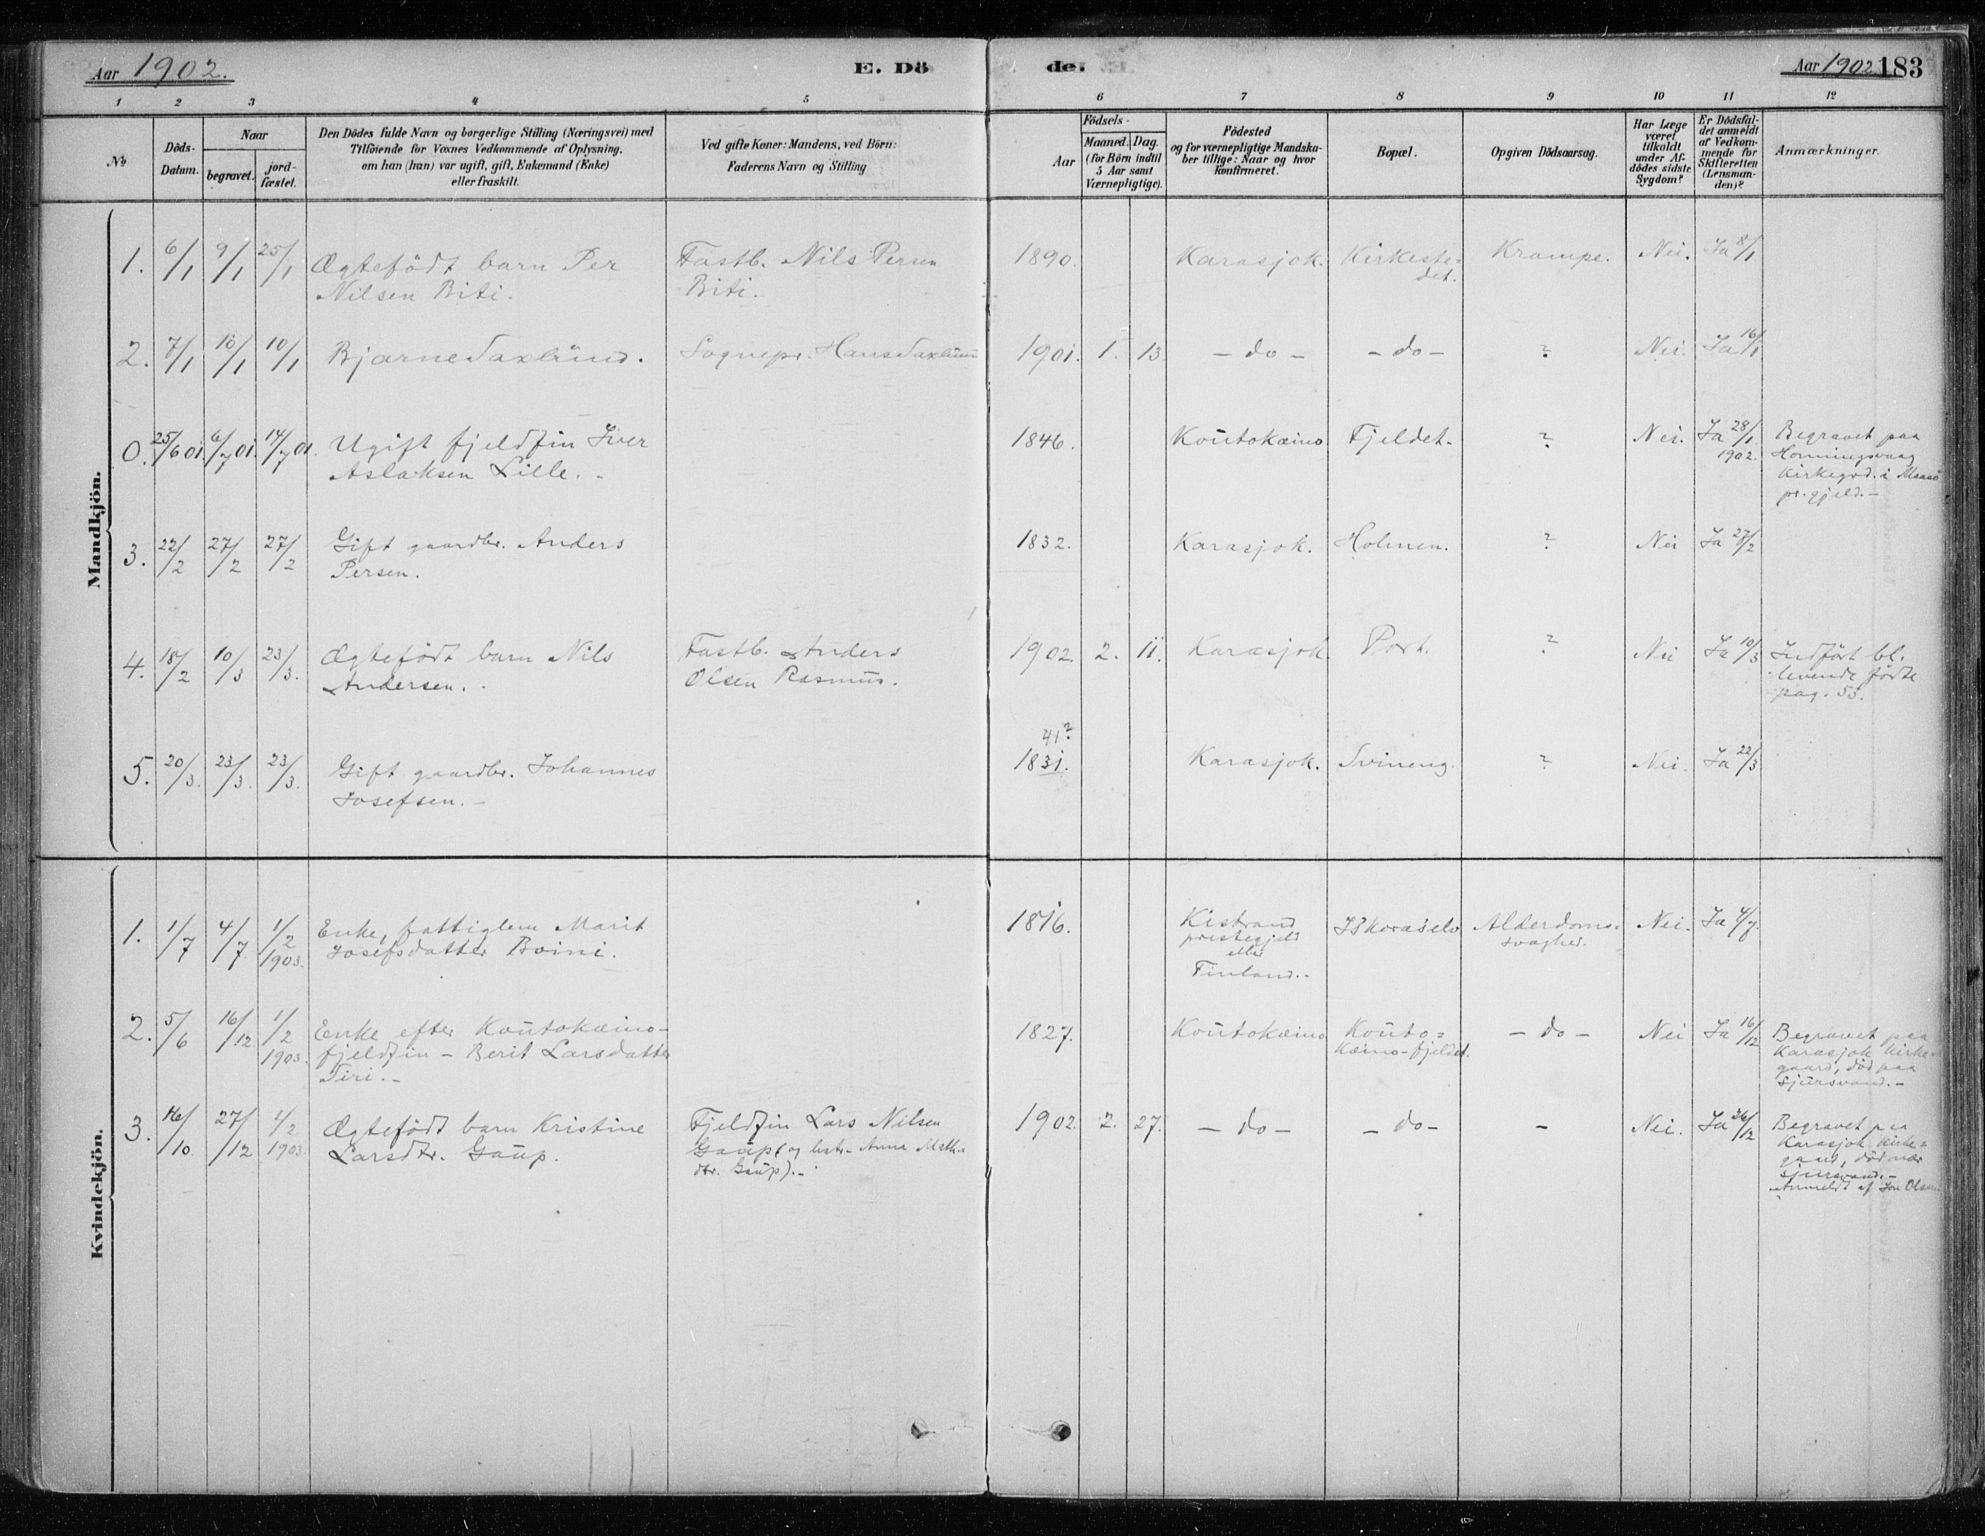 Aar 1902.
E. Dö
de.
Aar 1902 183
1 2 3 4 5 6 7 8 9 10 11 12
No
Döds-
Datum.
Naar
begravet.
jord-
fæstet.
Den Dödes fulde Navn og borgerlige Stilling (Næringsvei) med
Tilföiende for Voxnes Vedkommende af Oplysning,
om han (hun) var ugift, gift, Enkemand (Enke)
eller fraskilt.
Ved gifte Koner: Mandens, ved Börn:
Faderens Navn og Stilling
Födsels-
Aar
Maaned. Dag.
(for Börn indtil
5 Aar samt
Værnepligtige).
Födested
og for værnepligtige Mandska-
ber tillige: Naar og hvor
konfirmeret.
Bopæl.
Opgiven Dödsaarsag.
Har Læge
været
tilkaldt
under Af-
dödes sidste
Sygdom?
Er Dödsfal-
det anmeldt
af Vedkom-
mende for
Skifteretten
(Lensman-
den)?
Anmærkninger.
Mandkjön.
1. 6/1 9/1 25/1 Ægtefödt barn Per Fastb. Nils Persen 1890. Karasjok. Kirkeste- Krampe. Nei. Ja 8/1
Nilsen Biti. Biti. det.
2. 7/1 10/1 10/1 Bjarne Saxlund. Sognepr. Hans Saxlund 1901. 1. 13. - do - - do - ? Nei. Ja 16/1
0. 25/6 01 6/7 01. 14/7 01. Ugift fjeldfin Iver 1846. Koutokæino Fjeldet. ? Nei. Ja 28/1 Begravet paa
Aslaksen Lille. - 1902. Honningsvaag
Kirkegd. i Maasö
pr. gjeld. -
3. 22/2 27/2 27/2 Gift gaardbr. Anders 1832. Karasjok. Holmen. ? Nei Ja 27/2
Persen.
4. 18/2 10/3 23/3. Ægtefödt barn Nils Fastb. Anders 1902. 2. 11. Karasjok Port. ? Nei Ja 10/3 Indfört bl.
Andersen. Olsen Rasmus. levende födte
pag. 53.
41?
5. 20/3. 23/3. 23/3. Gift gaardbr. Johannes 1831. Karasjok. Svineng. ? Nei. Ja 22/3
Josefsen. -
Kvindekjön.
1. 1/7 4/7. 1/2 Enke, fattiglem Marit 1816. Kistrand Iskoraselv Alderdoms- Nei. Ja 4/7.
1903. Josefsdatter Boini. prestegjeld svaghed.
eller
Finland. -
2. 5/6 16/12. 1/2 Enke efter Koutokæino- 1827. Koutokæino Kouto- - do - Nei Ja 16/12 Begravet paa
1903. fjeldfin - Berit Larsdatter Kæino-fjeldet. Karasjok kirke-
Siri. - gaard, död paa
Sjursvand. -
3. 16/10 27/12 1/2 Ægtefödt barn Kristine Fjeldfin Lars Nilsen 1902. 2. 27. - do - - do - - Nei. Ja 26/12 Begravet paa
1903. Larsdtr. Gaup. Gaup (og hstr. Anna Math.- Karasjok Kirke-
dtr. Gaup). - gaard, död nær
Sjursvand. -
Anmeldt af Jon Olsen